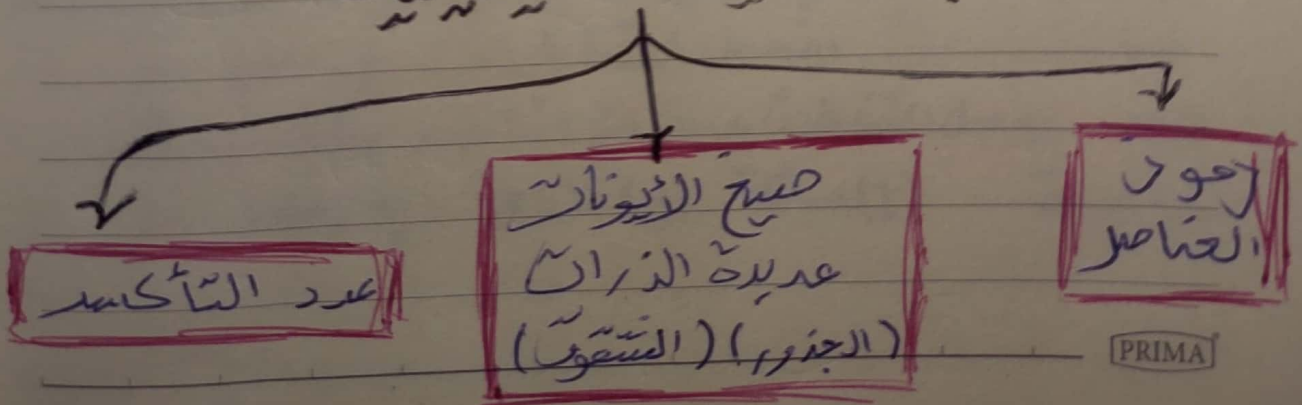 رموز
العناصر
صيغ الأيونات
عديدة الذرات
(الجذور) (الشقوق)
عدد التأكسد
PRIMA